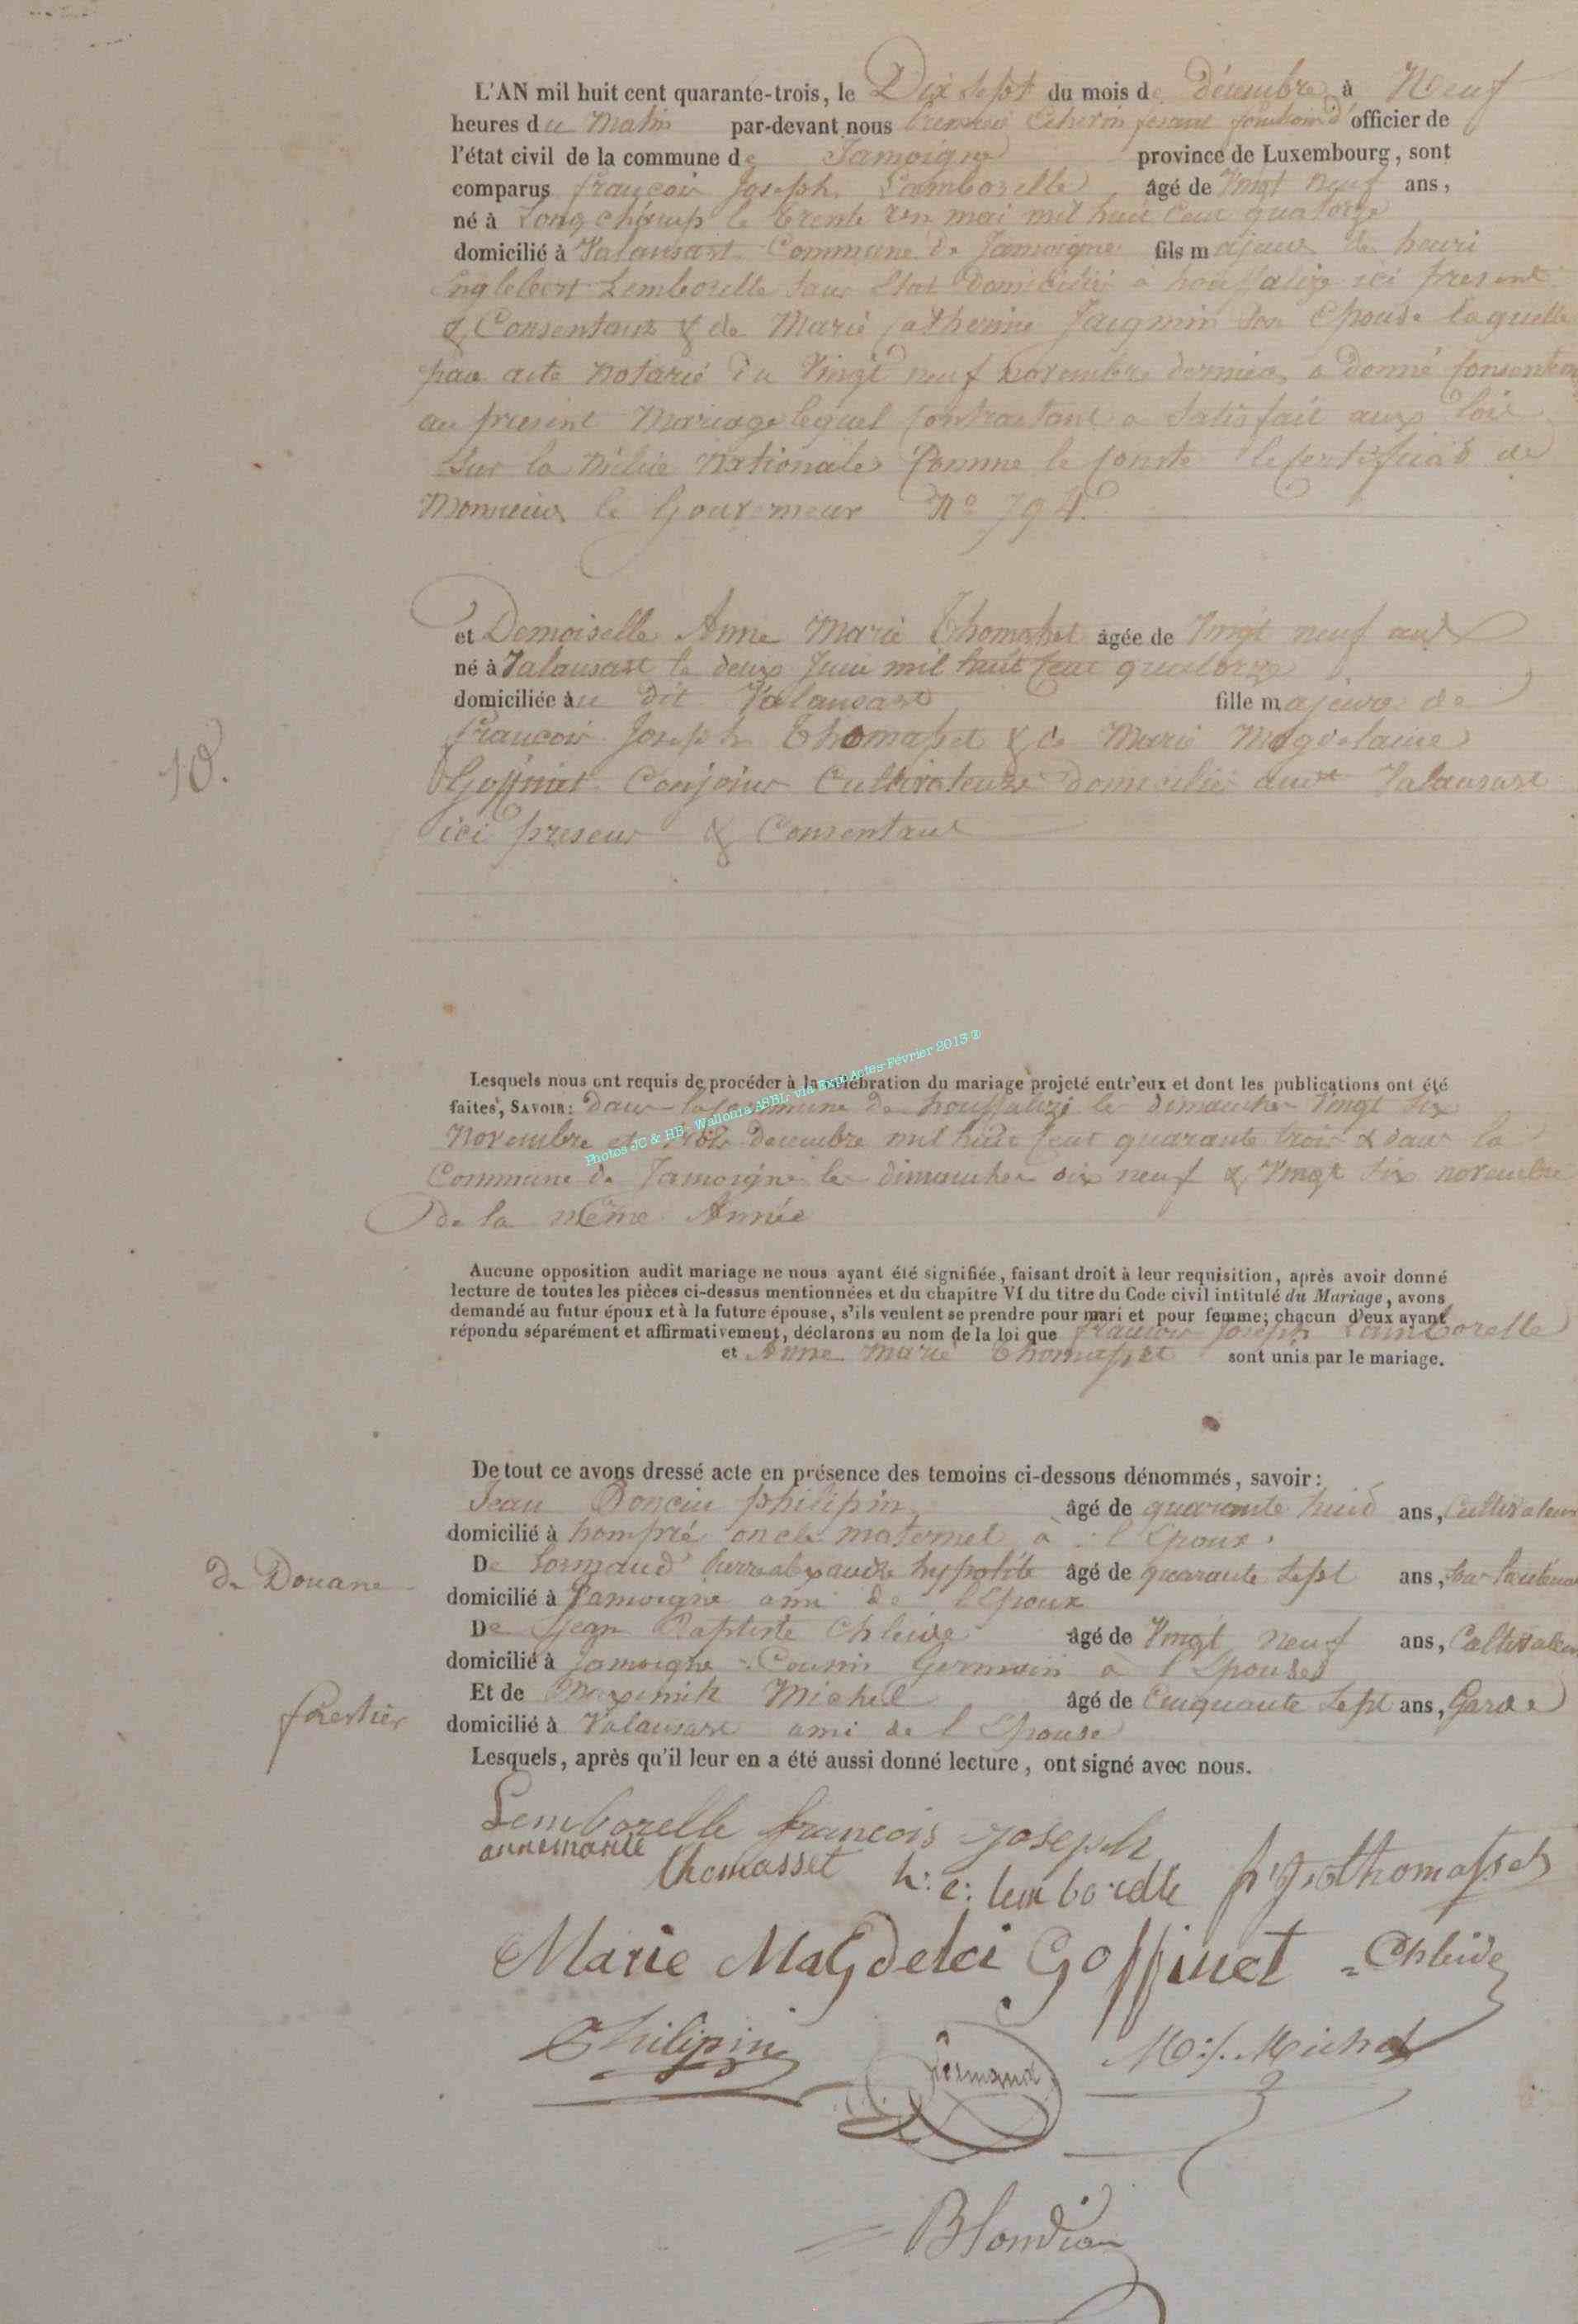 L'AN mil huit cent quarante-trois, le Dix Sept du mois de Décembre à Neuf
heures du Matin par-devant nous Echevin faisant fonction d'officier de
l'état civil de la commune de Jamoigne province de Luxembourg, sont
comparus françois Joseph Lamborelle âgé de Vingt Neuf ans,
né à Longchamp le trente un mai mil huit Cent quatorze
domicilié à Valansart Commune de Jamoigne fils majeur de henri
Englebert Lemborelle sans Etat Domicilié à houffalize ici present
& Consentant & de Marie Catherine Jaugmin Son Epouse laquelle
par acte Notarié du Vingt neuf novembre dernier a Donné Consent
au present Mariage lequel Contractant a Satisfait aux lois
Sur la Milice Nationale Comme le Conste le Certificat de
Monsieur le Gouverneur N° 794.
et Demoiselle Anne Marie Thomasset âgée de Vingt neuf ans
né à Valansart le deux Juin mil huit Cent quatorze
domiciliée au dit Valansart fille majeure de
françois Joseph Thomasset & de Marie Magdelaine
Goffinet Conjoins Cultivateurs domiciliés audt Valansart
10.
ici presens & Consentans
Lesquels nous ont requis de procéder à la célébration du mariage projeté entr'eux et dont les publications ont été
faites, SAVOIR: dans la Commune de houffalize les dimanches Vingt Six
Novembre et trois Decembre mil huit Cent quarante trois & dans la
Commune de Jamoigne les dimanches dix neuf & Vingt Six novembre
de la même Année
Photos JC & HB - Wallonia ASBL via ExpoActes-Février 2013 ®
Aucune opposition audit mariage ne nous ayant été signifiée, faisant droit à leur requisition, après avoir donné
lecture de toutes les pièces ci-dessus mentionnées et du chapitre VI du titre du Code civil intitulé du Mariage, avons
demandé au futur époux et à la future épouse, s'ils veulent se prendre pour mari et pour femme; chacun d'eux ayant
répondu séparément et affirmativement, déclarons au nom de la loi que françois Joseph Lamborelle
et Anne Marie Thomasset sont unis par le mariage.
De tout ce avons dressé acte en présence des temoins ci-dessous dénommés, savoir:
Jean Poncin philipin âgé de quarante huit ans, Cultivateur
domicilié à hompré oncle maternel à l'Epoux
De formand pierre alexandre hypolite âgé de quarante Sept ans, Sous lieutenant
de Douane
domicilié à Jamoigne ami de l'Epoux
De Jean Baptiste Chleide âgé de Vingt Neuf ans, Cultivateur
domicilié à Jamoigne Cousin Germain à l'Epouse
Et de Maximin Michel âgé de Cinquante Sept ans, Garde
forestier
domicilié à Valansart ami de l'Epouse
Lesquels, après qu'il leur en a été aussi donné lecture, ont signé avec nous.
Lemborelle francois joseph
annemarie thomasset h: e: lemborelle thomasset
Marie Magdelei Goffinet Chleide
Philipin formand M:J. Michel
Blondiau